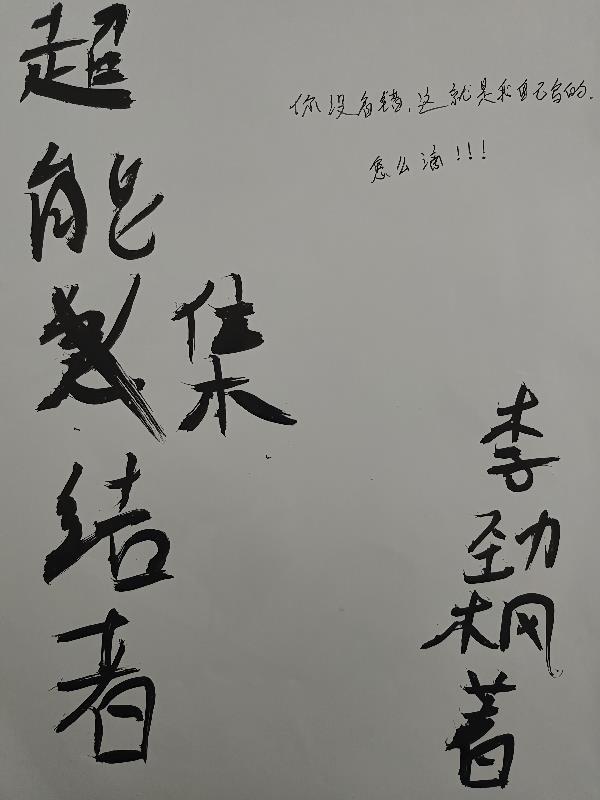 超能集结者
你没看错,这就是我自己写的.
怎么滴!!!
李劲枫著